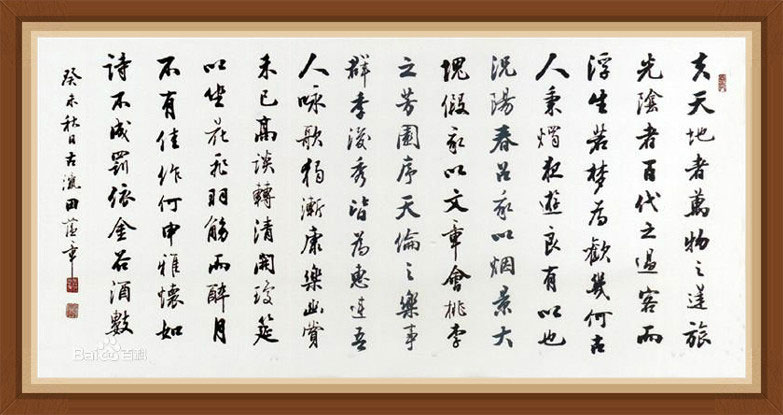 夫天地者萬物之逆旅
光陰者百代之過客而
浮生若夢為歡幾何古
人秉燭夜遊良有以也
況陽春召我以烟景大
塊假我以文章會桃李
之芳園序天倫之樂事
群季俊秀皆為惠連吾
人咏歌獨慚康樂幽賞
未已高談轉清開瓊筵
以坐花飛羽觴而醉月
不有佳作何申雅懷如
詩不成罰依金谷酒數
癸未秋日古瀛田蘊章
Baidu百科